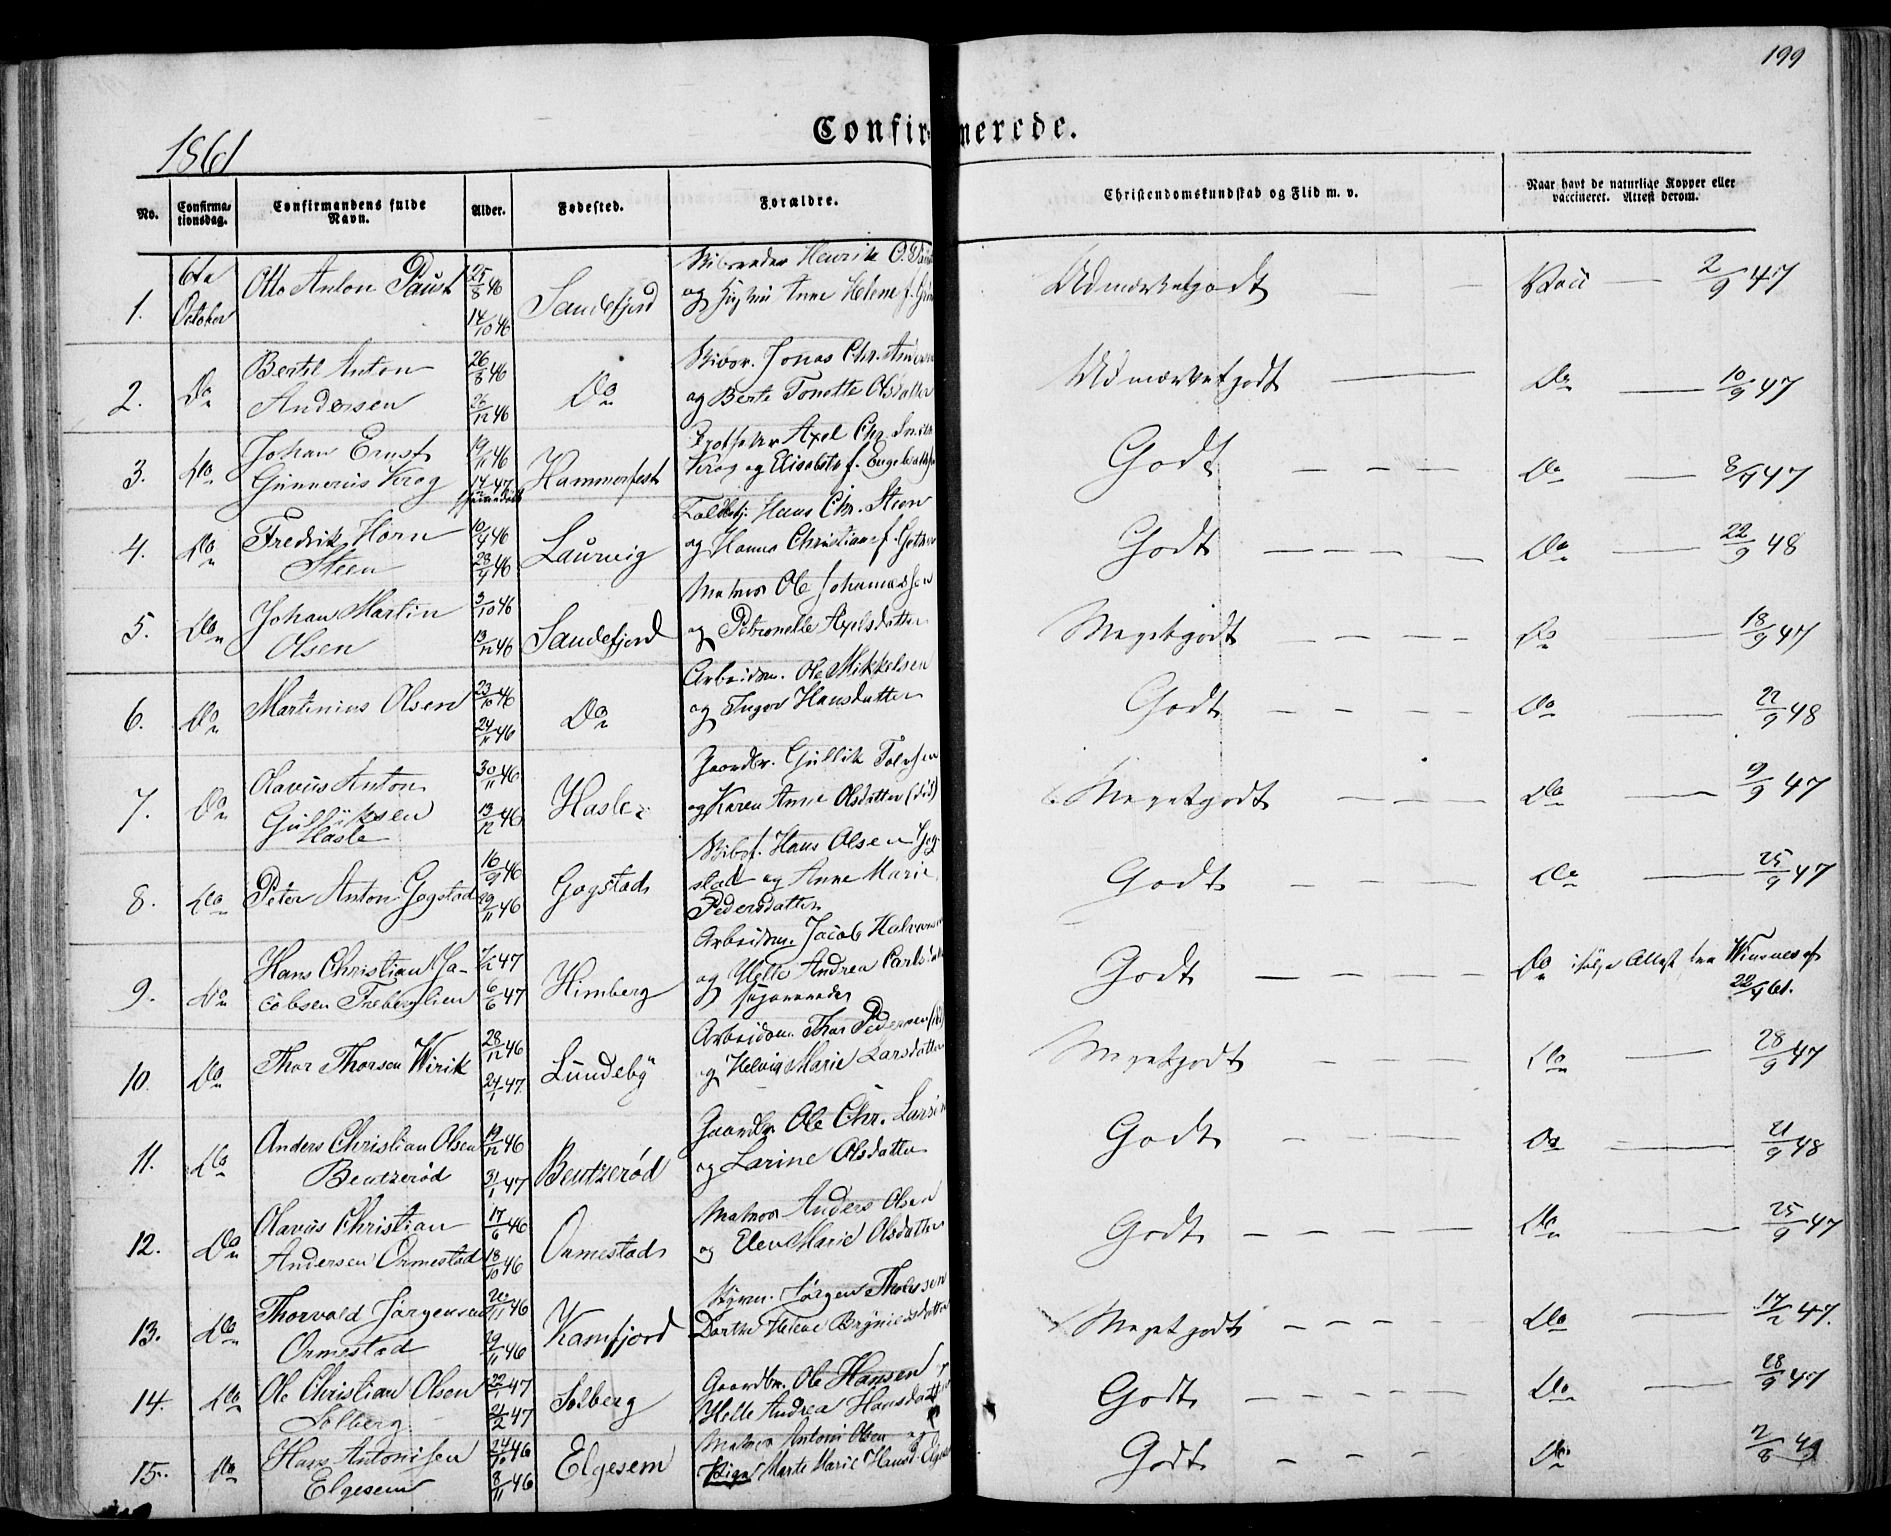 199
1861
Confirmerede.
No. Confirmationsdag. Confirmandens fulde Navn. Alder. Fødested. Forældre. Christendomskundskab og Flid m. v. Naar havt de naturlige Kopper eller vaccineret. Attest derom.
1. 6te October Otto Anton Paust 25/8 46 14/10 46 Sandefjord Henrik O. og Anne Helene f. Udmærketgodt — — Vacc — 2/9 47
2. Do Bertel Anton Andersen 26/8 46 26/12 46 Do Jonas Chr. og Berte Tonette Olsdatter Udmærketgodt — Do — 10/9 47
3. Do Johan Ernst Gunnerius Krog 19/11 46 14/2 47 Hammerfest Axel Chr. Krog og Elisabeth f. Godt — — — — Do — 8/9 47
4. Do Fredrik Horn Steen 10/4 46 28/9 46 Laurvig Hans Chr. Steen og Hanna Christiane f. Godt — — — — Do — 22/9 48
5. Do Johan Martin Olsen 3/10 46 13/12 46 Sandefjord Matros Ole Johannessen og Petronelle Axelsdatter Megetgodt — — — — Do — 18/9 47
6. Do Martinius Olsen 23/10 46 24/11 46 Do Arbeidsm. Ole Mikkelsen og Inger Hansdatter Godt — — — — Do — 22/9 48
7. Do Olavus Anton Gulliksen Hasle 30/11 46 13/12 46 Hasle Gaardbr. Gullik og Karen Anne Olsdatter (død) Megetgodt — — — Do — 9/9 47
8. Do Peter Anton Gogstad 16/9 46 29/11 46 Gogstad Hans Olsen Gogstad og Anne Marie Pedersdatter Godt — — — Do — 25/9 47
9. Do Hans Christian Jacobsen 1/2 47 6/6 47 Himberg Arbeidsm. Jacob og Helle Andrea Godt — — — — Do ifølge Attest fra 22/4 61.
10. Do Thor Thorsen Wirik 28/12 46 24/1 47 Lundeby Arbeidsm. Thor Pedersen og Helvig Marie Larsdatter Megetgodt — — — Do — 28/9 47
11. Do Anders Christian Olsen Bentzerød 19/12 46 31/1 47 Bentzerød Gaardbr. Ole Chr. Larsen og Larine Olsdatter Godt — — — Do — 21/9 48
12. Do Olavus Christian Andersen Ormestad 17/6 46 18/10 46 Ormestad Matros Anders Olsen og Elen Marie Olsdatter Godt — — — — Do — 25/9 47
13. Do Thorvald Jørgensen Ormestad 20/11 46 29/11 46 Kamfjord Jørgen Dorthe Helene Megetgodt — — — Do — 17/2 47.
14. Do Ole Christian Olsen Solberg 22/1 47 21/2 47 Solberg Gaardbr. Ole Hansen og Helle Andrea Hansdatter Godt — — — — Do — 28/9 47
15. Do Hans Antonisen Elgesem 24/10 46 8/11 46 Elgesem Matros Antoni Olsen og Pige Marte Marie Hansd. Godt — — — Do 2/8 49